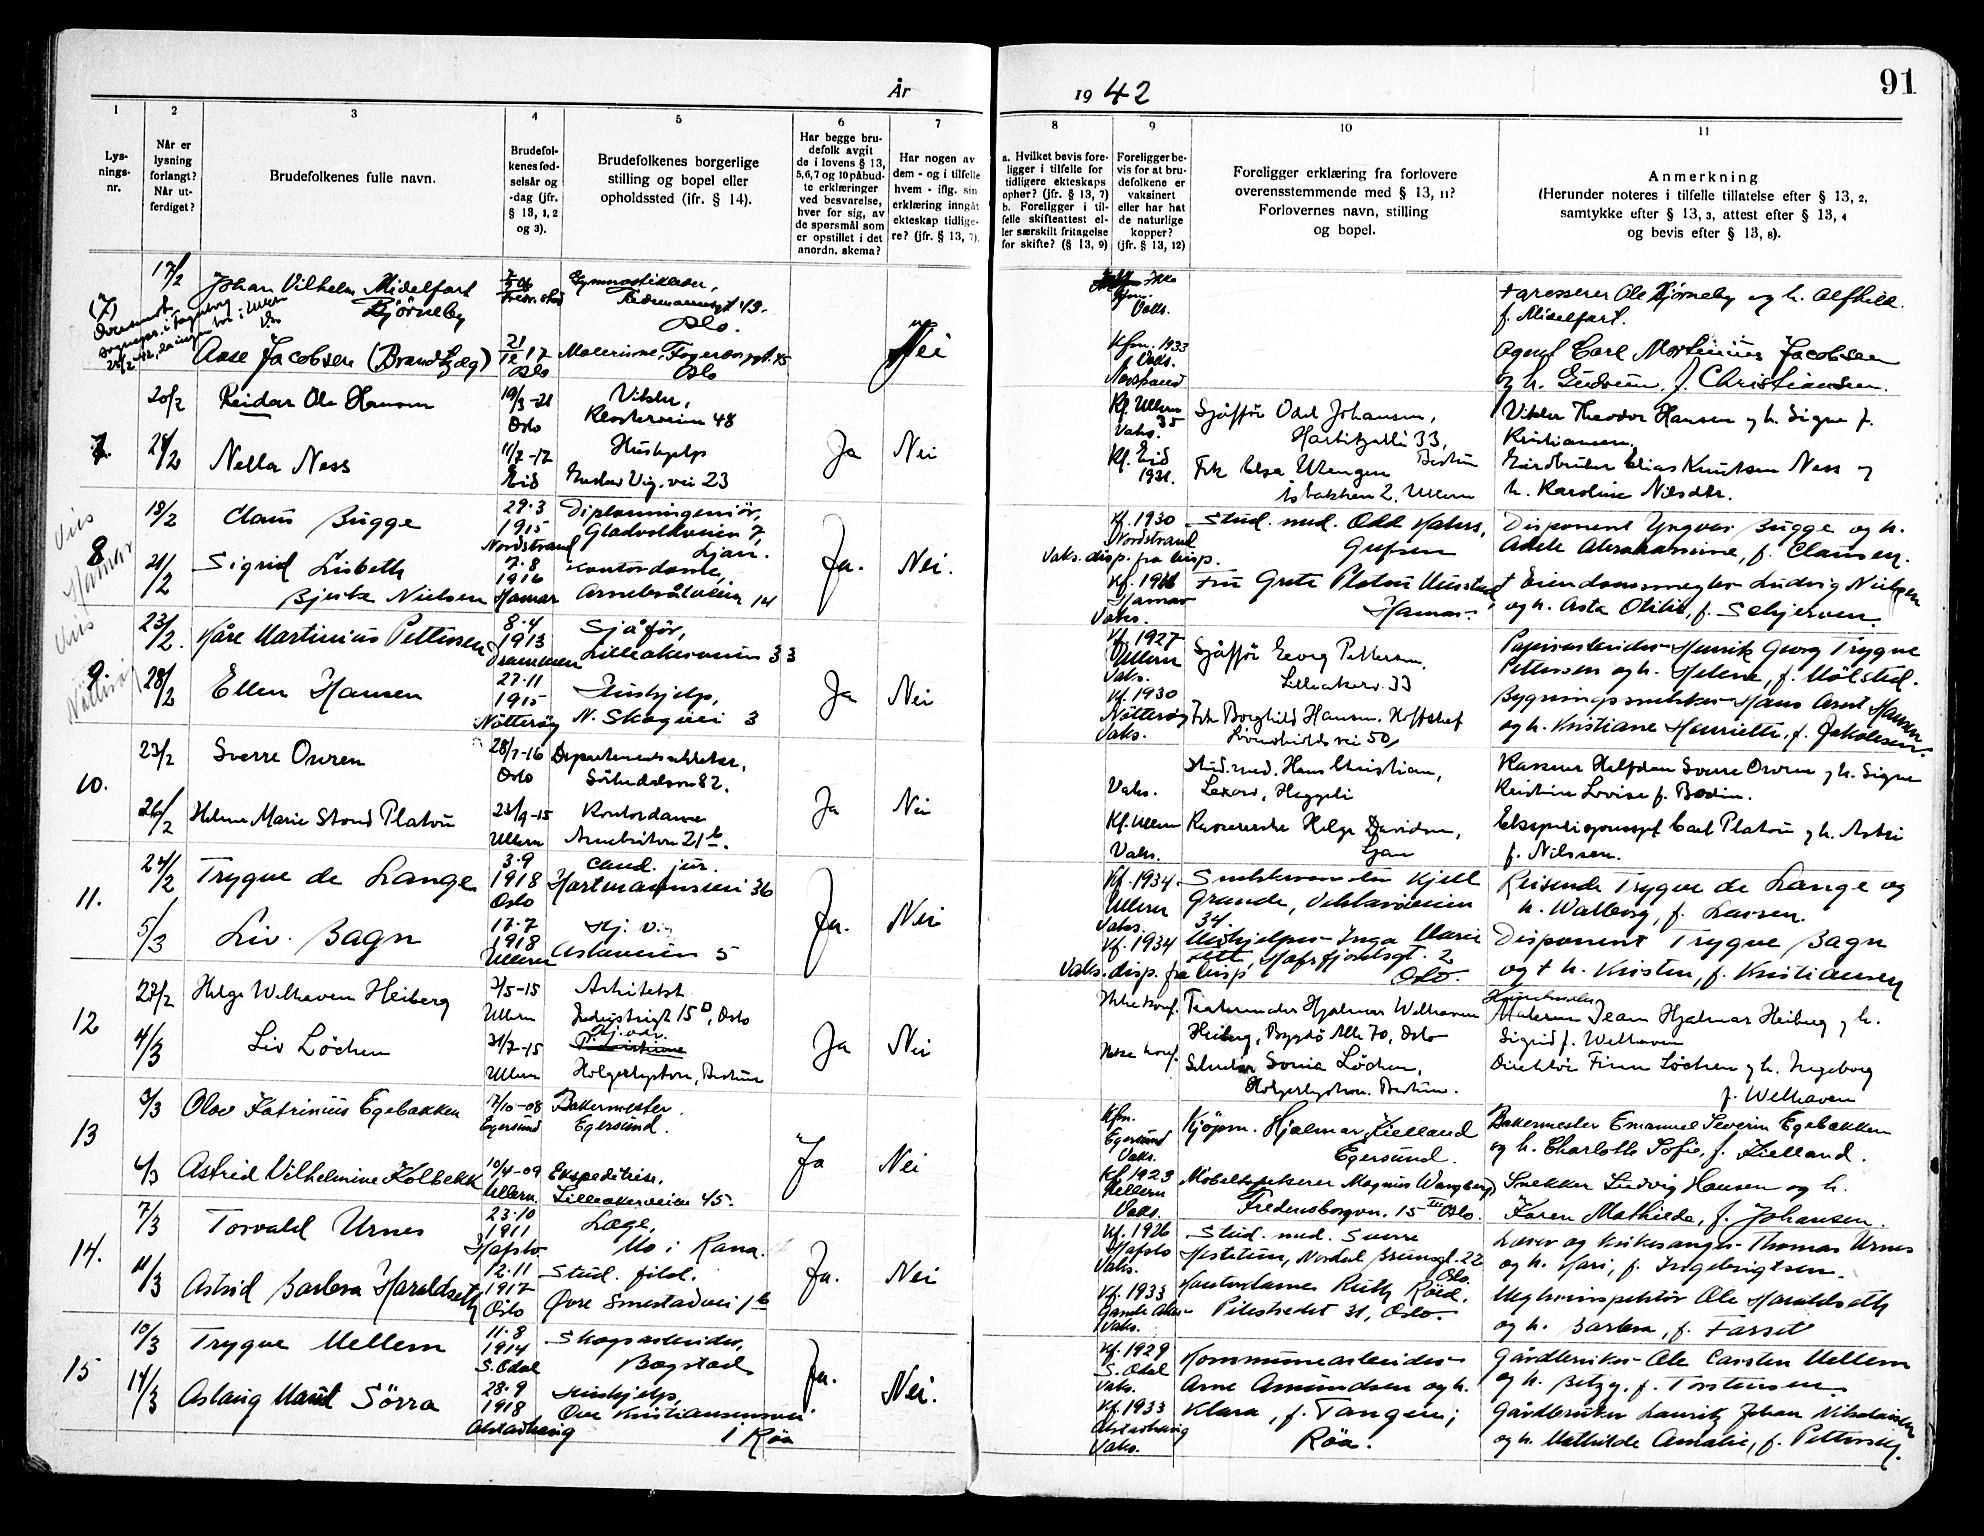 År
19 42
91
1
2
3
4
5
6
7
8
9
10
11
Lys-
nings-
nr.
Når er
lysning
forlangt?
Når ut-
ferdiget?
Brudefolkenes fulle navn.
Brudefol-
kenes fød-
selsår og
-dag (jfr.
§ 13, 1, 2
og 3).
Brudefolkenes borgerlige
stilling og bopel eller
opholdssted (ifr. § 14).
Har begge bru-
defolk avgit
de i lovens § 13,
5,6,7 og 10 påbud-
te erklæringer
ved besvarelse,
hver for sig, av
de spørsmål som
er opstillet i det
anordn. skema?
Har nogen av
dem - og i tilfelle
hvem - iflg. sin
erklæring inngåt
ekteskap tidlige-
re? (jfr. § 13, 7).
a. Hvilket bevis fore-
ligger i tilfelle for
tidligere ekteskaps
ophør? (jfr. § 13, 7)
b. Foreligger i til-
felle skifteattest el-
ler særskilt fritagelse
for skifte? (§ 13, 9)
Foreligger be-
vis for at bru-
defolkene er
vaksinert
eller har hat
de naturlige
kopper?
(jfr. § 13, 12)
Foreligger erklæring fra forlovere
overensstemmende med § 13, 11?
Forlovernes navn, stilling
og bopel.
Anmerkning
(Herunder noteres i tilfelle tillatelse efter § 13, 2,
samtykke efter § 13, 3, attest efter § 13, 4
og bevis efter § 13, 8).
(7)
17/2
Johan Vilhelm Midelfart
Bjørneby
Oslo.
Vaks.
Aresserer Ole Bjørneby og h. Alfhild
f. Midelfart.
Aase Jacobsen (Brandtzæg)
21/12 17
Oslo
Malerinne, Fagerborggt. 15
Oslo
Nei
Kfm. 1933
Vaks.
Agent Carl Mortinius Jacobsen
og h. Gudrun, f. Christiansen.
7.
20/2
Reidar Ole Hansen
19/3-21
Oslo
Vikler,
Klosterveien 48
Ja
Nei
Kf. Ullern
35
Vaks.
Sjåffør Odd Johansen,
33,
Bestum
Vikler Theodor Hansen og h. Signe f.
Kristiansen.
21/2
Nella Ness
11/7-17
Eid
Hushjelp
Gustav Vig. vei 23
Kf. Eid
1931.
Frk Elsa Utengen
2, Ullern
Gårdbruker Elias Knutsen Ness og
h. Karoline Nilsdtr.
8
Hamar
18/2
Claus Bugge
29.3
1915
Nordstrand
Diplomingeniør,
Gladvollveien 7,
Ljan.
Ja.
Nei.
Kf. 1930
Nordstrand
Vaks. disp. fra bisp.
Stud. med. Odd
Grefsen
Disponent Yngvar Bugge og h.
Adele Abrahamine, f. Clausen.
21/2
Sigrid Lisbeth
Bjerke Nielsen
7.8
1916
Hamar
Kontordame,
14
Hamar
Vaks.
Fru Grete Platou
Hamar.
† Eiendomsmegler Ludvig Nielsen
og h. Asta Otilie, f. Schjerven.
9.
Nøtterøy
23/2.
Kåre Martinius Pettersen
8.4
1913
Drammen
Sjåfør,
Lilleakerveien 33
Ja
Nei
Kf. 1927
Ullern
Vaks.
Sjåffør Georg Pettersen,
Lilleakerv. 33
Papirarbeider Henrik Georg Trygve
Pettersen og h. Helene, f. Mølsted.
28/2
Ellen Hansen
27.11
1915
Nøtterøy
Hushjelp,
N. Skogvei 3
Kf. 1930
Nøtterøy
Vaks.
Frk Borghild Hansen.
50
Bygningssnekker Hans Arnt Hansen
og h. Kristiane Henriette, f. Jakobsen.
10.
23/2
Sverre Owren
28/7-16
Oslo
82.
Ja
Nei
Vaks.
Stud. med. Hans Christian,
Heggeli
Kasserer Halfdan Sverre Owren og h. Signe
Kristine Lovise f. Bodin.
26/2
Helene Marie Stoud Platou
23/9-15
Ullern
Kontordame
21 b.
Kf. Ullern
Vaks.
Helge Davidsen,
Ljan
Carl Platou og h. Astri
f. Nilssen.
11.
24/2
Trygve de Lange
3.9
1918
Oslo
cand. jur.
Hartmannsvei 36
Ja.
Nei
Kf. 1934.
Ullern
Vaks.
Kjell
Grande,
34.
Reisende Trygve de Lange og
h. Walborg, f. Larsen.
5/3
Liv. Bagn
17.7
1918
Ullern
Askeveien 5
Kf. 1934
Vaks. disp. fra bisp
Inga Marie
Hafrsfjordsgt. 2
Oslo.
Disponent Trygve Bagn
og † h. Kirsten, f. Kristiansen
12
28/2
Helge Welhaven Heiberg
Ullern
Arkitekt
15 D, Oslo
Ja
Nei
Ikke konf.
Teatermaler Hjalmar Welhaven
Heiberg, Bygdø Alle 70, Oslo
Jean Hjalmar Heiberg og h.
Sigrid f. Welhaven
4/3
Liv Löchen
31/7-15
Ullern
Holgerlystvn, Bestum
Ikke konf.
Student Sonia Löchen,
Holgerlystvn. Bestum.
Direktør Finn Løchen og h. Ingeborg
f. Welhaven
13
3/3
Olav Katrinius Egebakken
17/10-08
Egersund
Bakermester.
Egersund.
Ja
Nei
Kfm.
Egersund
Vaks.
Kjøpm. Hjalmar Kielland
Egersund.
Bakermester Emanuel Severin Egebakken
og h. Charlotte Sofie, f. Kielland.
4/3
Astrid Vilhelmine Kolbekk
10/4-09
Ullern
Ekspeditrise,
Lilleakerveien 45.
Kf. 1923
Ullern
Vaks.
Møbeltapetserer Magnus Wangberg
Fredensborgvn. 15 III Oslo.
Snekker Ludvig Hansen og h.
Karen Mathilde, f. Johansen.
14.
7/3
Torvald Urnes
23.10
1911
Hafslo
Læge,
Mo i Rana.
Ja.
Nei
Kf. 1926
Hafslo
Vaks.
Stud. med. Sverre
Hestetun, Nordal Brunsgt. 22
Oslo.
Lærer og kirkesanger Thomas Urnes
og h. Kari, f. Ingebrigtsen.
11/3
Astrid Barbra Haraldseth
12.11
1917
Oslo
Stud. filol.
Øvre Smestadvei 1 b
Kf. 1933
Gamle Aker
Vaks.
Kontordame Ruth Röed,
Pilestredet 31, Oslo.
Ole Haraldseth
og h. Barbra, f. Farset
15
10/3
Trygve Mellem
11.8
1914
S. Odal
Skogsarbeider,
Bogstad
Ja.
Nei.
Kf. 1929
S. Odal
Vaks.
Kommunearbeider
Arne Amundsen og h.
Klara, f. Tangen;
Røa.
Gårdbruker Ole Carsten Mellem
og h. Betzy, f. Torstensen.
14/3
Aslaug Maut Sörra
28.9
1918
Alstadhaug
Hushjelp,
Ove Kristiansensvei
1 Røa
Kf. 1933
Alstadhaug
Vaks.
Gårdbruker Lauritz Johan Nikolaisen
og h. Mathilde Amalie, f. Petersen.